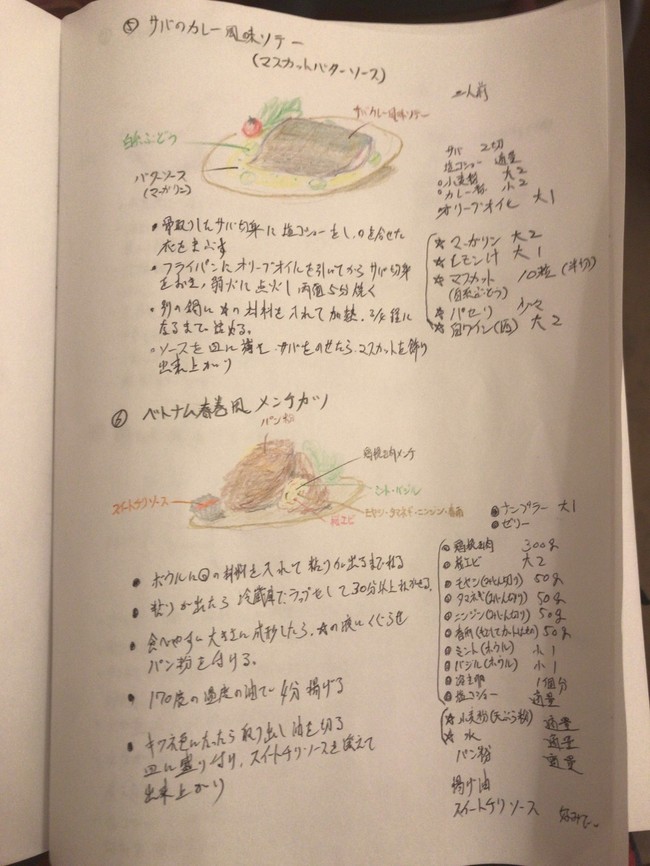 ⑤ サバのカレー風味ソテー
(マスカットバターソース)
二人前
サバカレー風味ソテー
白ぶどう
バターソース
(マーガリン)
サバ 2切
塩コショー 適量
○小麦粉 大2
○カレー粉 小2
オリーブオイル 大1
☆マーガリン 大2
☆レモン汁 大1
☆マスカット 10粒(半切)
(白ぶどう)
☆パセリ 少々
☆白ワイン(酒) 大2
・骨取りしたサバ切身に塩コショーをし、○を合せた
衣をまぶす
・フライパンにオリーブオイルを引いてからサバ切身
をおき、弱火に点火し両面5分焼く
・別の鍋に☆の材料を入れて加熱、2/3程に
なるまで詰める。
・ソースを皿に満たし、サバをのせたら、マスカットを飾り
出来上がり
⑥ ベトナム春巻風メンチカツ
パン粉
鶏挽肉メンチ
ミント・バジル
モヤシ・タマネギ・ニンジン・春雨
桜エビ
スイートチリソース
◎ナンプラー 大1
◎ゼリー
◎鶏挽肉 300g
◎桜エビ 大2
◎モヤシ(みじん切り) 50g
◎タマネギ(みじん切り) 50g
◎ニンジン(みじん切り) 50g
◎春雨(もどしてカットしたもの) 50g
◎ミント(ホウル) 小1
◎バジル(ホウル) 小1
◎溶き卵 1個分
◎塩コショー 適量
☆小麦粉(天ぷら粉) 適量
☆水 適量
パン粉 適量
揚げ油
スイートチリソース 好みで
・ボウルに◎の材料を入れて粘りが出るまで練る
・粘りが出たら冷蔵庫でラップをして30分以上ねかせる。
・食べやすい大きさに成形したら、☆の液にくぐらせ
パン粉を付ける。
・170度の温度の油で4分揚げる
・キツネ色になったら取り出し油を切る
皿に盛り付け、スイートチリソースを添えて
出来上がり